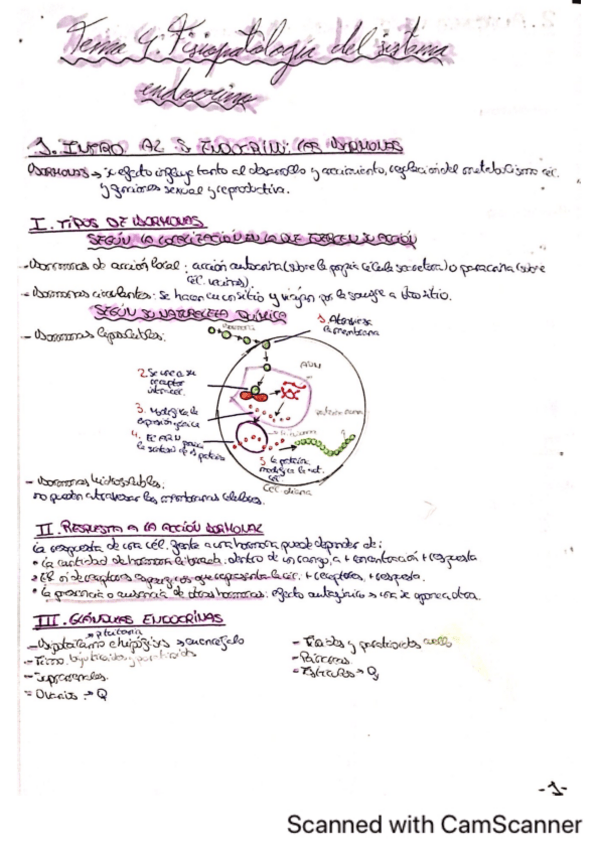 Tema 4: Fisiopatología del sistema
endocrino
1. INTRO AL S. ENDOCRINO: LAS HORMONAS
HORMONAS → su efecto influye tanto al desarrollo y crecimiento, regulación del metabolismo cél.
y funciones sexual y reproductiva.
I. TIPOS DE HORMONAS
SEGÚN LA LOCALIZACIÓN EN LA QUE EJERCEN SU ACCIÓN
- Hormonas de acción local: acción autocrina (sobre la propia célula secretora) o paracrina (sobre
cél. vecinas).
- Hormonas circulantes: se hacen en un sitio y viajan por la sangre a otro sitio.
SEGÚN SU NATURALEZA QUÍMICA
- Hormonas liposolubles:
1. Atraviesa
la membrana
2. Se une a su
receptor
intracel.
3. Modifica la
expresión génica
4. El ARN
la síntesis de la proteína
5. la proteína
modifica la act.
cel.
Cél. diana
- Hormonas hidrosolubles:
no pueden atravesar las membranas celulares.
II. RESPUESTA A LA ACCIÓN HORMONAL
La respuesta de una cél. frente a una hormona puede depender de:
• La cantidad de hormona liberada. dentro de un rango, a + concentración + respuesta
• El nº de receptores específicos que representa la cél. + receptores, + respuesta.
• La presencia o ausencia de otras hormonas: efecto antagónico → una se opone a otra.
III. GLÁNDULAS ENDOCRINAS
→ pituitaria
- Hipotálamo e hipófisis → encéfalo
- Timo
- Suprarrenales.
- Ovarios → ♀
- Tiroides y paratiroides cuello
- Páncreas.
- Testículos → ♂
-1-
Scanned with CamScanner